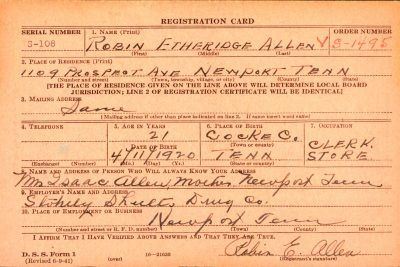 REGISTRATION CARD
SERIAL NUMBER 1. NAME (Print) ORDER NUMBER
S-108 ROBIN ETHERIDGE ALLEN V S-1495
2. PLACE OF RESIDENCE (Print)
1109 PROSPECT AVE NEWPORT TENN
(Number and street) (Town, township, village, or city) (County) (State)
[THE PLACE OF RESIDENCE GIVEN ON THE LINE ABOVE WILL DETERMINE LOCAL BOARD
JURISDICTION; LINE 2 OF REGISTRATION CERTIFICATE WILL BE IDENTICAL]
3. MAILING ADDRESS
Same
[Mailing address if other than place indicated on line 2. If same insert word same]
4. TELEPHONE 5. AGE IN YEARS 6. PLACE OF BIRTH 7. OCCUPATION
21 COCKE CO. CLERK
DATE OF BIRTH (Town or county)
4/11/1920 TENN STORE
(Exchange) (Number) (Mo.) (Day) (Yr.) (State or country)
8. NAME AND ADDRESS OF PERSON WHO WILL ALWAYS KNOW YOUR ADDRESS
Mrs Isaac Allen, Mother, Newport Tenn
9. EMPLOYER'S NAME AND ADDRESS
Drug Co.
10. PLACE OF EMPLOYMENT OR BUSINESS
Newport Tenn
(Number and street or R. F. D. number) (Town) (County) (State)
I AFFIRM THAT I HAVE VERIFIED ABOVE ANSWERS AND THAT THEY ARE TRUE.
D. S. S. Form 1 (over) Robin E. Allen
(Revised 6-9-41) (Registrant's signature)